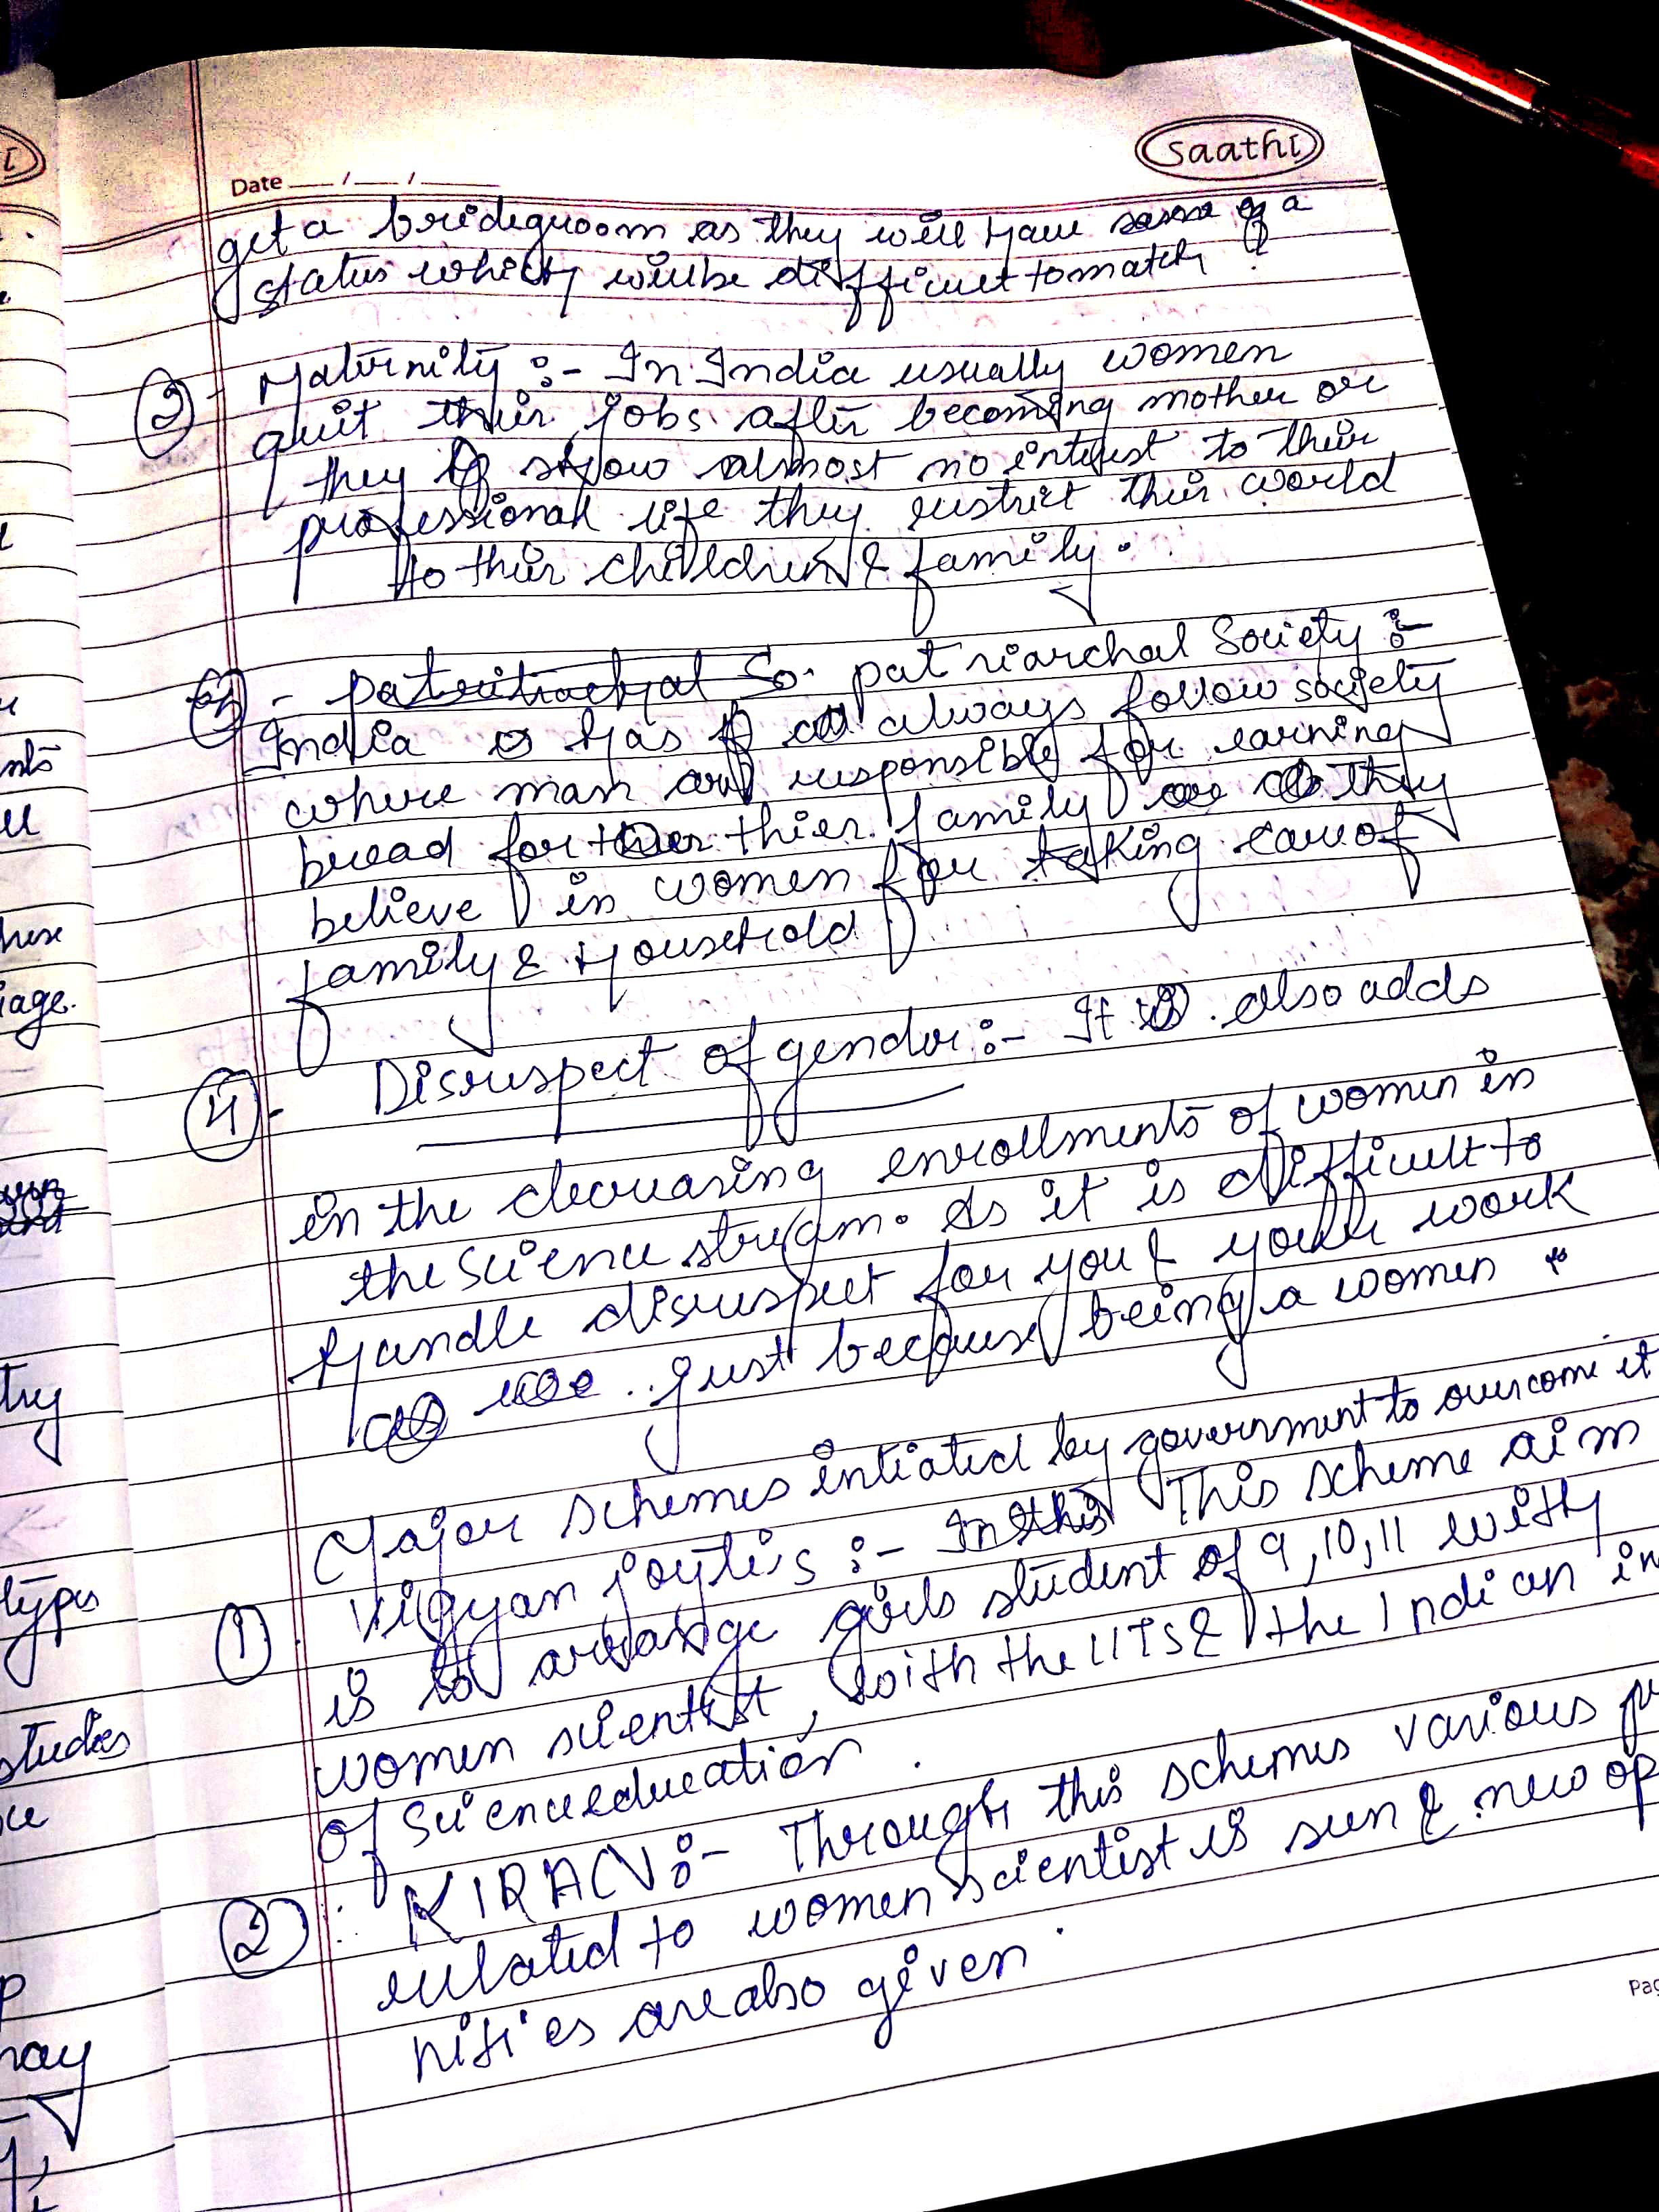 saathi
Date __/__/____
get a bridegroom as they will have a
status which will be difficult to match
Maternity :- In India usually women
quit their jobs after becoming mother or
they show almost no interest to their
professional life they restrict their world
to their children & family.
patriarchal Society :-
India has always follow society
where man are responsible for earning
bread for thier family they
believe in women for taking care of
family & Household
4. Disrespect of gender :- It also adds
in the decreasing enrollments of women in
the science stream. As it is difficult to
Handle disrespect for you & your work
just because being a women
Major schemes intiated by government to overcome it
1 Vigyan joytis :- This scheme aim
is to arrange girls student of 9, 10, 11 with
women scientist, with the IITs & the Indian in
of Science education.
2 KIRAN :- Through this schemes various
related to women scientist is seen & new op
nities are also given.
nts
iage.
try
types
studies